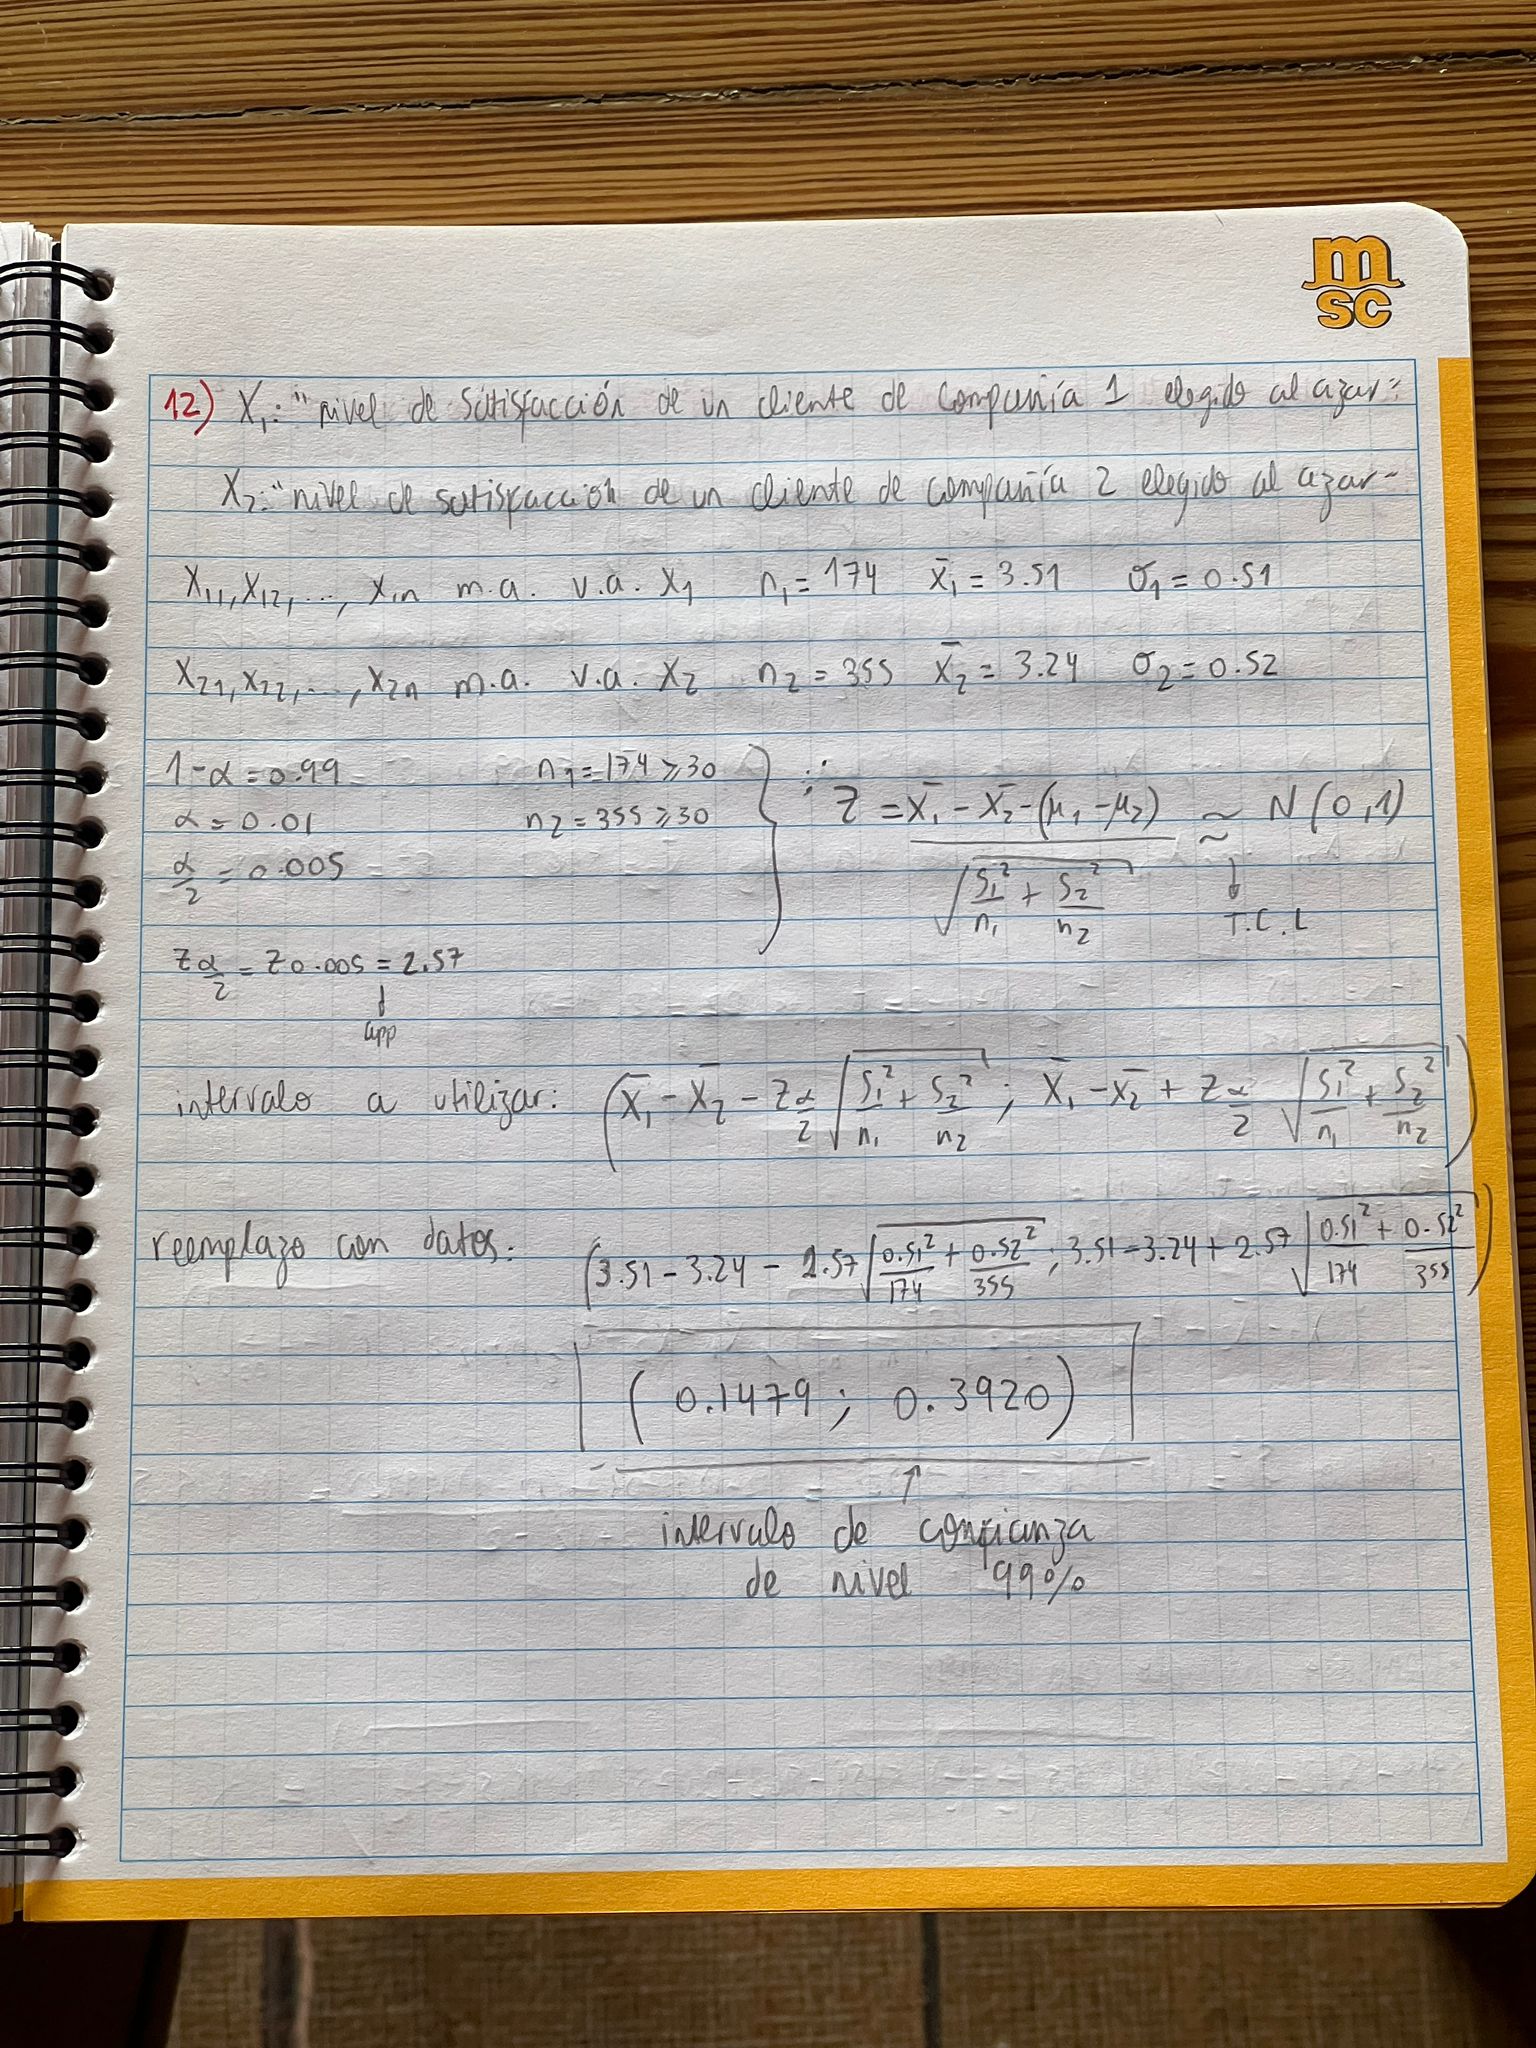 m
sc
12) X₁: "nivel de satisfacción de un cliente de compañía 1 elegido al azar"
X₂: "nivel de satisfacción de un cliente de compañía 2 elegido al azar"
X₁₁, X₁₂, ..., X₁n m.a. v.a. X₁ n₁ = 174 x̄₁ = 3.51 σ₁ = 0.51
X₂₁, X₂₂, ..., X₂n m.a. v.a. X₂ n₂ = 355 x̄₂ = 3.24 σ₂ = 0.52
1-α = 0.99 n₁ = 174 ≥ 30 } ∴ Z = (X̄₁ - X̄₂ - (μ₁ - μ₂)) / √(S₁²/n₁ + S₂²/n₂) ≈ N(0,1)
α = 0.01 n₂ = 355 ≥ 30
α/2 = 0.005
↓ T.C.L
z α/2 = z 0.005 = 2.57
↓
app
intervalo a utilizar: (X̄₁ - X̄₂ - z α/2 √(S₁²/n₁ + S₂²/n₂) ; X̄₁ - X̄₂ + z α/2 √(S₁²/n₁ + S₂²/n₂))
reemplazo con datos: (3.51 - 3.24 - 2.57 √(0.51²/174 + 0.52²/355) ; 3.51 - 3.24 + 2.57 √(0.51²/174 + 0.52²/355))
(0.1479 ; 0.3920)
↑
intervalo de confianza
de nivel 99%